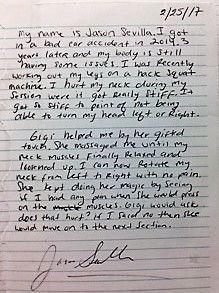 2/25/17
My name is Jason Sevilla. I got
in a bad car accident in 2014, 3
years later and my body is still
having some issues. I was recently
working out my legs on a hack squat
machine. I hurt my neck during my
session were it got really stiff. It
got so stiff to point of not being
able to turn my head left or Right.
Gigi helped me by her gifted
touch. She massaged me until my
neck muscles finally relaxed and
loosened up. I can now rotate my
neck from left to Right with no pain.
She kept doing her magic by seeing
if I had any pain when she would press
on the muscles. Gigi would ask
does that hurt? If I said no then she
would move on to the next section.